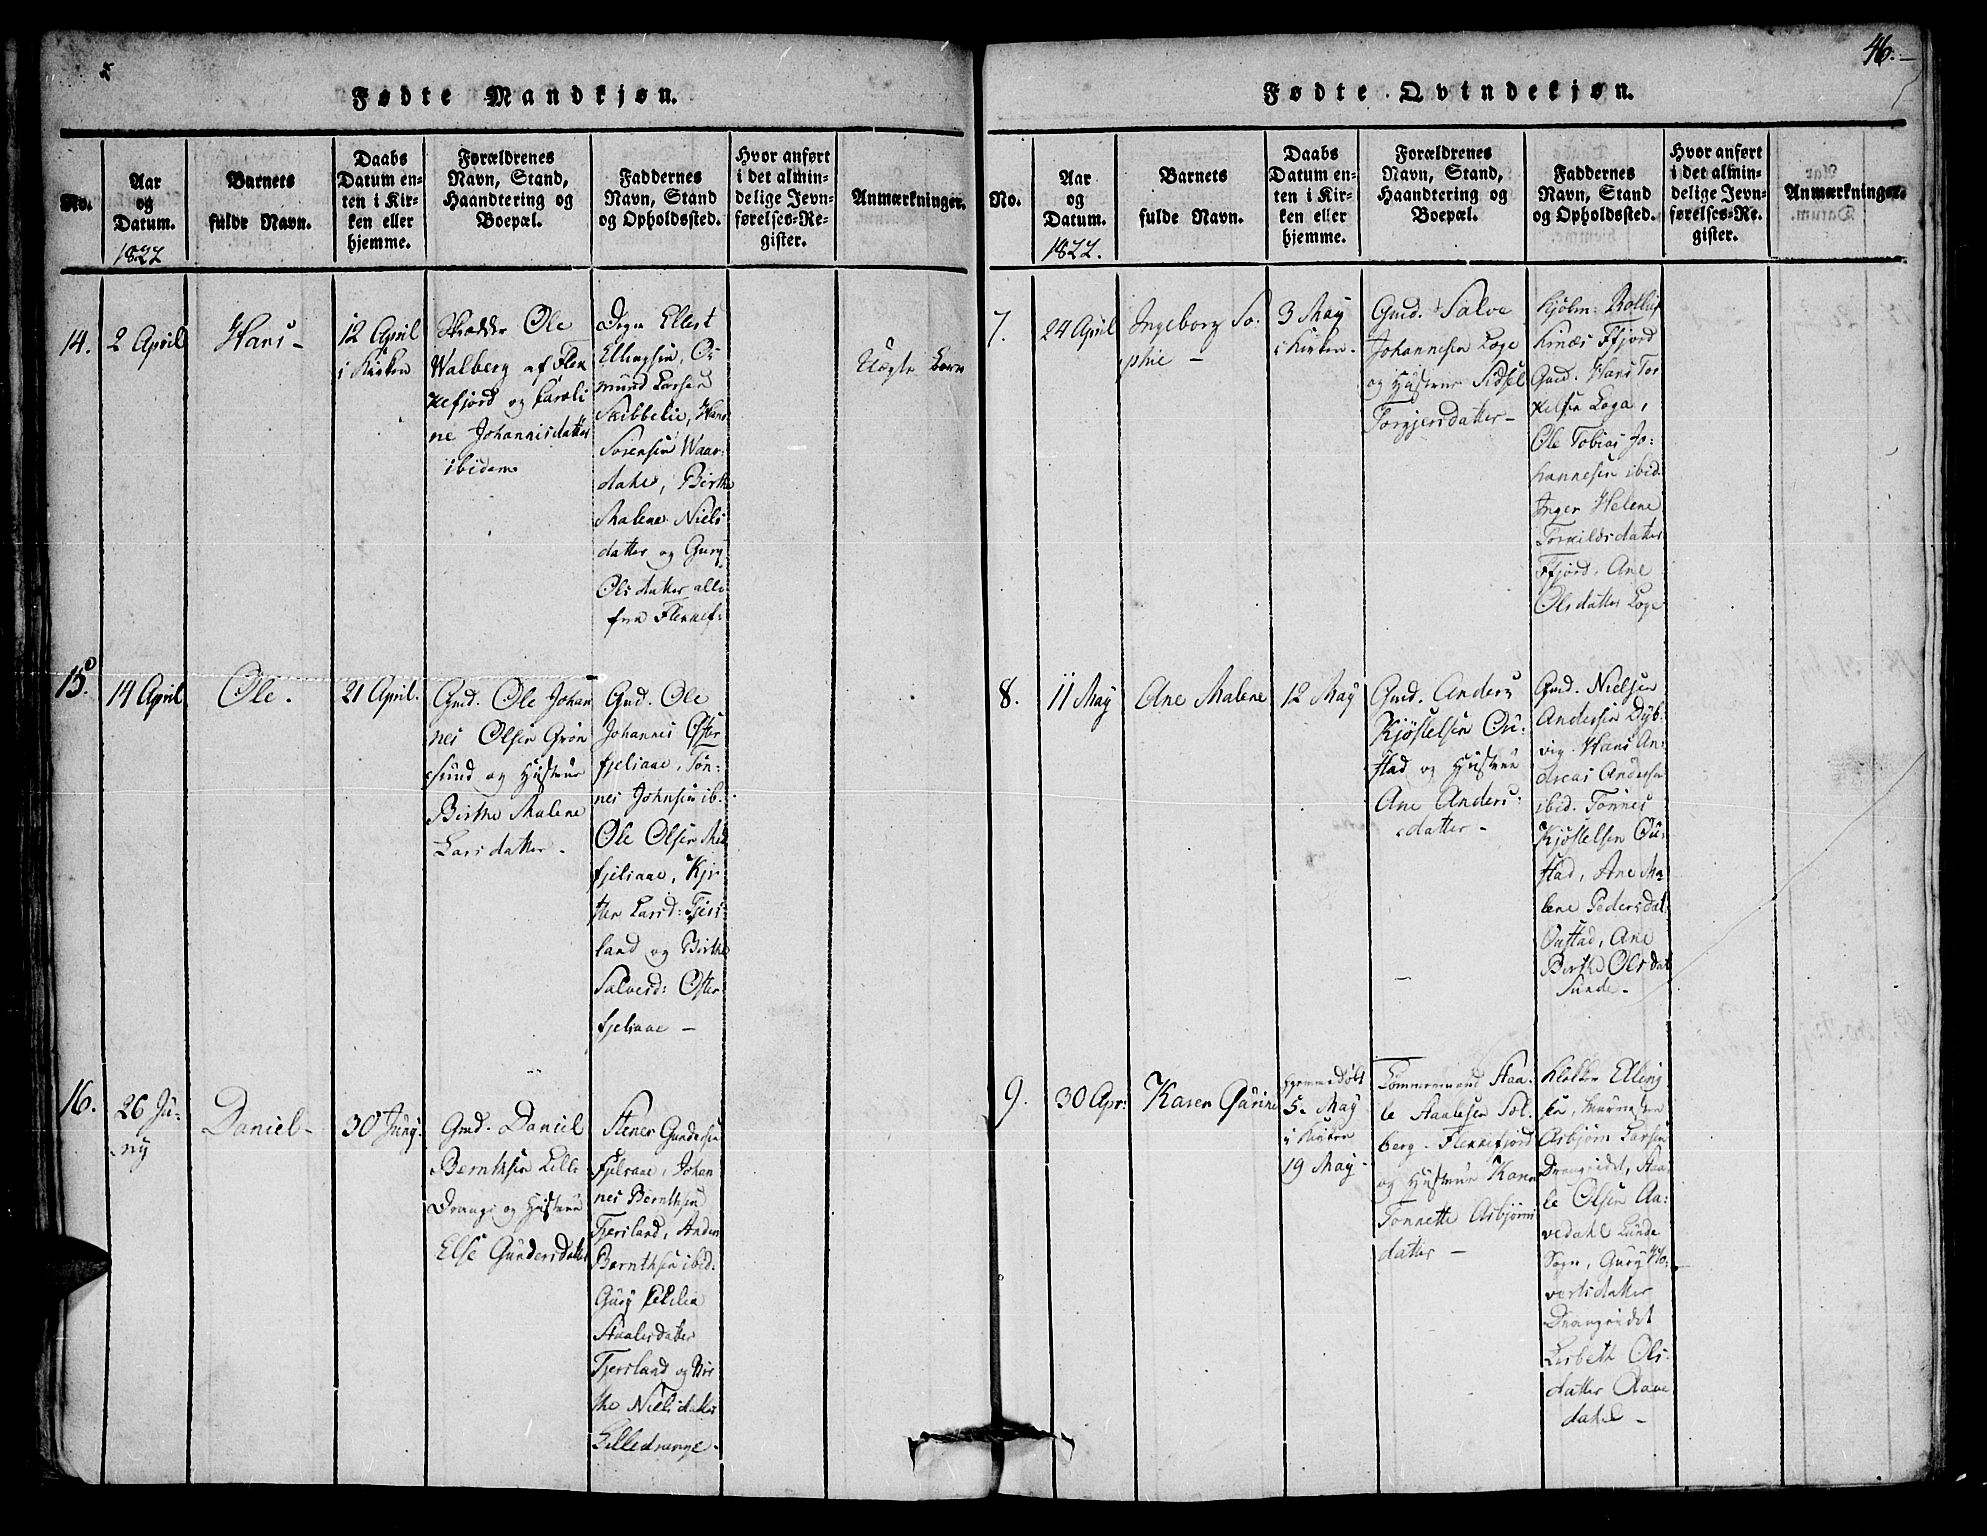 46.
Fødte Mandkjøn.
No.
Aar
og
Datum.
1822
Barnets
fulde Navn.
Daabs
Datum en-
ten i Kir-
ken eller
hjemme.
Forældrenes
Navn, Stand,
Haandtering og
Boepæl.
Faddernes
Navn, Stand
og Opholdssted.
Hvor anført
i det almin-
delige Jevn-
førelses-Re-
gister.
Anmærkninger.
14.
2 April
Hans -
12 April
i Kirken
Skrædder Ole
Walberg af Flek
kefjord og Karoli
ne Johannisdatter
ibidem
Degn Ellest
Ellingsen, Os
mund Larsen
Skibbelie, Hans
Sørensen Waar
dahl, Birthe
Malene Niels
datter og Gury
Olsdatter alle
fra Flekkef:
Uægte Barn
15.
14 April
Ole.
21 April.
Gmd. Ole Johan
nes Olsen Grøn
sund og Hustrue
Birthe Malene
Larsdatter -
Gmd. Ole
Johannes Øster
fjeliaae, Tøn-
nes Johnsen ib.
Ole Olsen Med
fjeliaae, Kjer
sten Larsd: Fjers
land og Birthe
Salvesd: Øster
fjeliaae -
16.
26 Ju-
ny
Daniel -
30 Juny.
Gmd. Daniel
Berntsen Lille
Drange og Hustrue
Else Gundersdatter
Stener Gundersen
Fjeliaae, Johan
nes Bernthsen
Fjersland, Anders
Bernthsen ibid:
Gury Cecilia
Staalesdatter
Fjersland og Bir
the Nielsdatter
Lilledrange -
Fødte Qvindekjøn.
No.
Aar
og
Datum.
1822.
Barnets
fulde Navn.
Daabs
Datum en-
ten i Kir-
ken eller
hjemme.
Forældrenes
Navn, Stand,
Haandtering og
Boepæl.
Faddernes
Navn, Stand
og Opholdssted.
Hvor anført
i det almin-
delige Jevn-
førelses-Re-
gister.
Anmærkninger.
7.
24 April
Ingeborg So-
phie -
3 May
i Kirken.
Gmd. Salve
Johannesen Loge
og Hustrue Sidsel
Torgjersdatter -
Kjøbm:
Ffjord
Gmd. Hans Tor
kelsen Loga,
Ole Tobias Jo-
hannesen ibid:
Inger Helene
Torkildsdatter
Ffjord, Ane
Olsdatter Loge
8.
11 May
Ane Malene
12 May
Gmd. Anders
Kjøstelsen Ou-
stad og Hustrue
Ane Anders-
datter -
Gmd. Nielsen
Andersen Dyb-
vig, Hans An-
dreas Andersen
ibid. Tønnes
Kjøstelsen Ou-
stad, Ane Ma-
lene Pedersdat.
Oustad, Ane
Berthe Olsdat
Sunde -
9.
30 Apr:
Karen Qurine
hjemmedøbt
5. May
i Kirken
19 May.
Tømmermand Staa-
le Staalesen Sol-
berg Flekkefjord
og Hustrue Karen
Tonnette Asbjørns
datter -
Klokker Elling
sen,
Asbjørn Larsen
Drangeidet, Staa-
le Olsen Aa-
vedahl Lunde
Sogn, Gury Ho-
vertsdatter
Drangeidet
Lisbeth Ols-
datter Aave
dahl -